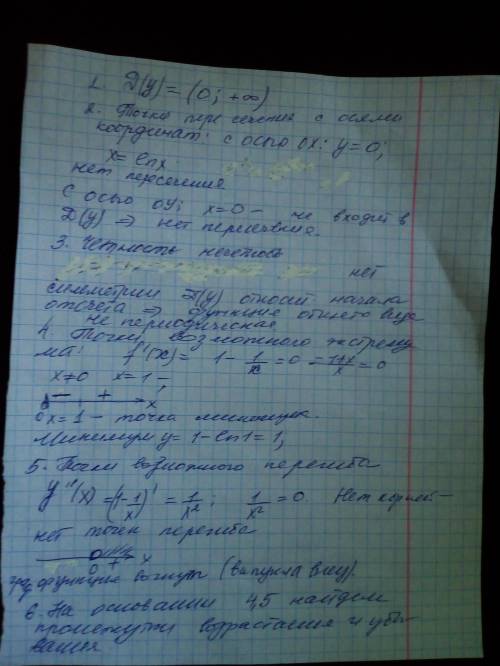 1. D(y) = (0; +∞)
2. Точки пересечения с осями
координат: с осью OX: y=0;
x = lnx
нет пересечения
С осью OY; x=0 – не входит в
D(y) ⇒ нет пересечения.
3. Четность нечетнос
нет
симметрии D(y) относит начала
отсчета ⇒ функция общего вида
не периодическая
4. Точки возможного экстрему
ма: f'(x) = 1 - 1/x = 0 =
x≠0 x=1;
0 – + x
x=1 – точка минимума.
Минимум y = 1 - ln1 = 1;
5. Точки возможного перегиба
y''(x) = (1 - 1/x)' = 1/x²; 1/x² = 0. Нет корней –
нет точек перегиба
0 + x
функция вогнута (выпукла вниз).
6. На основании 4,5 найдем
промежутки возрастания и убы
вания